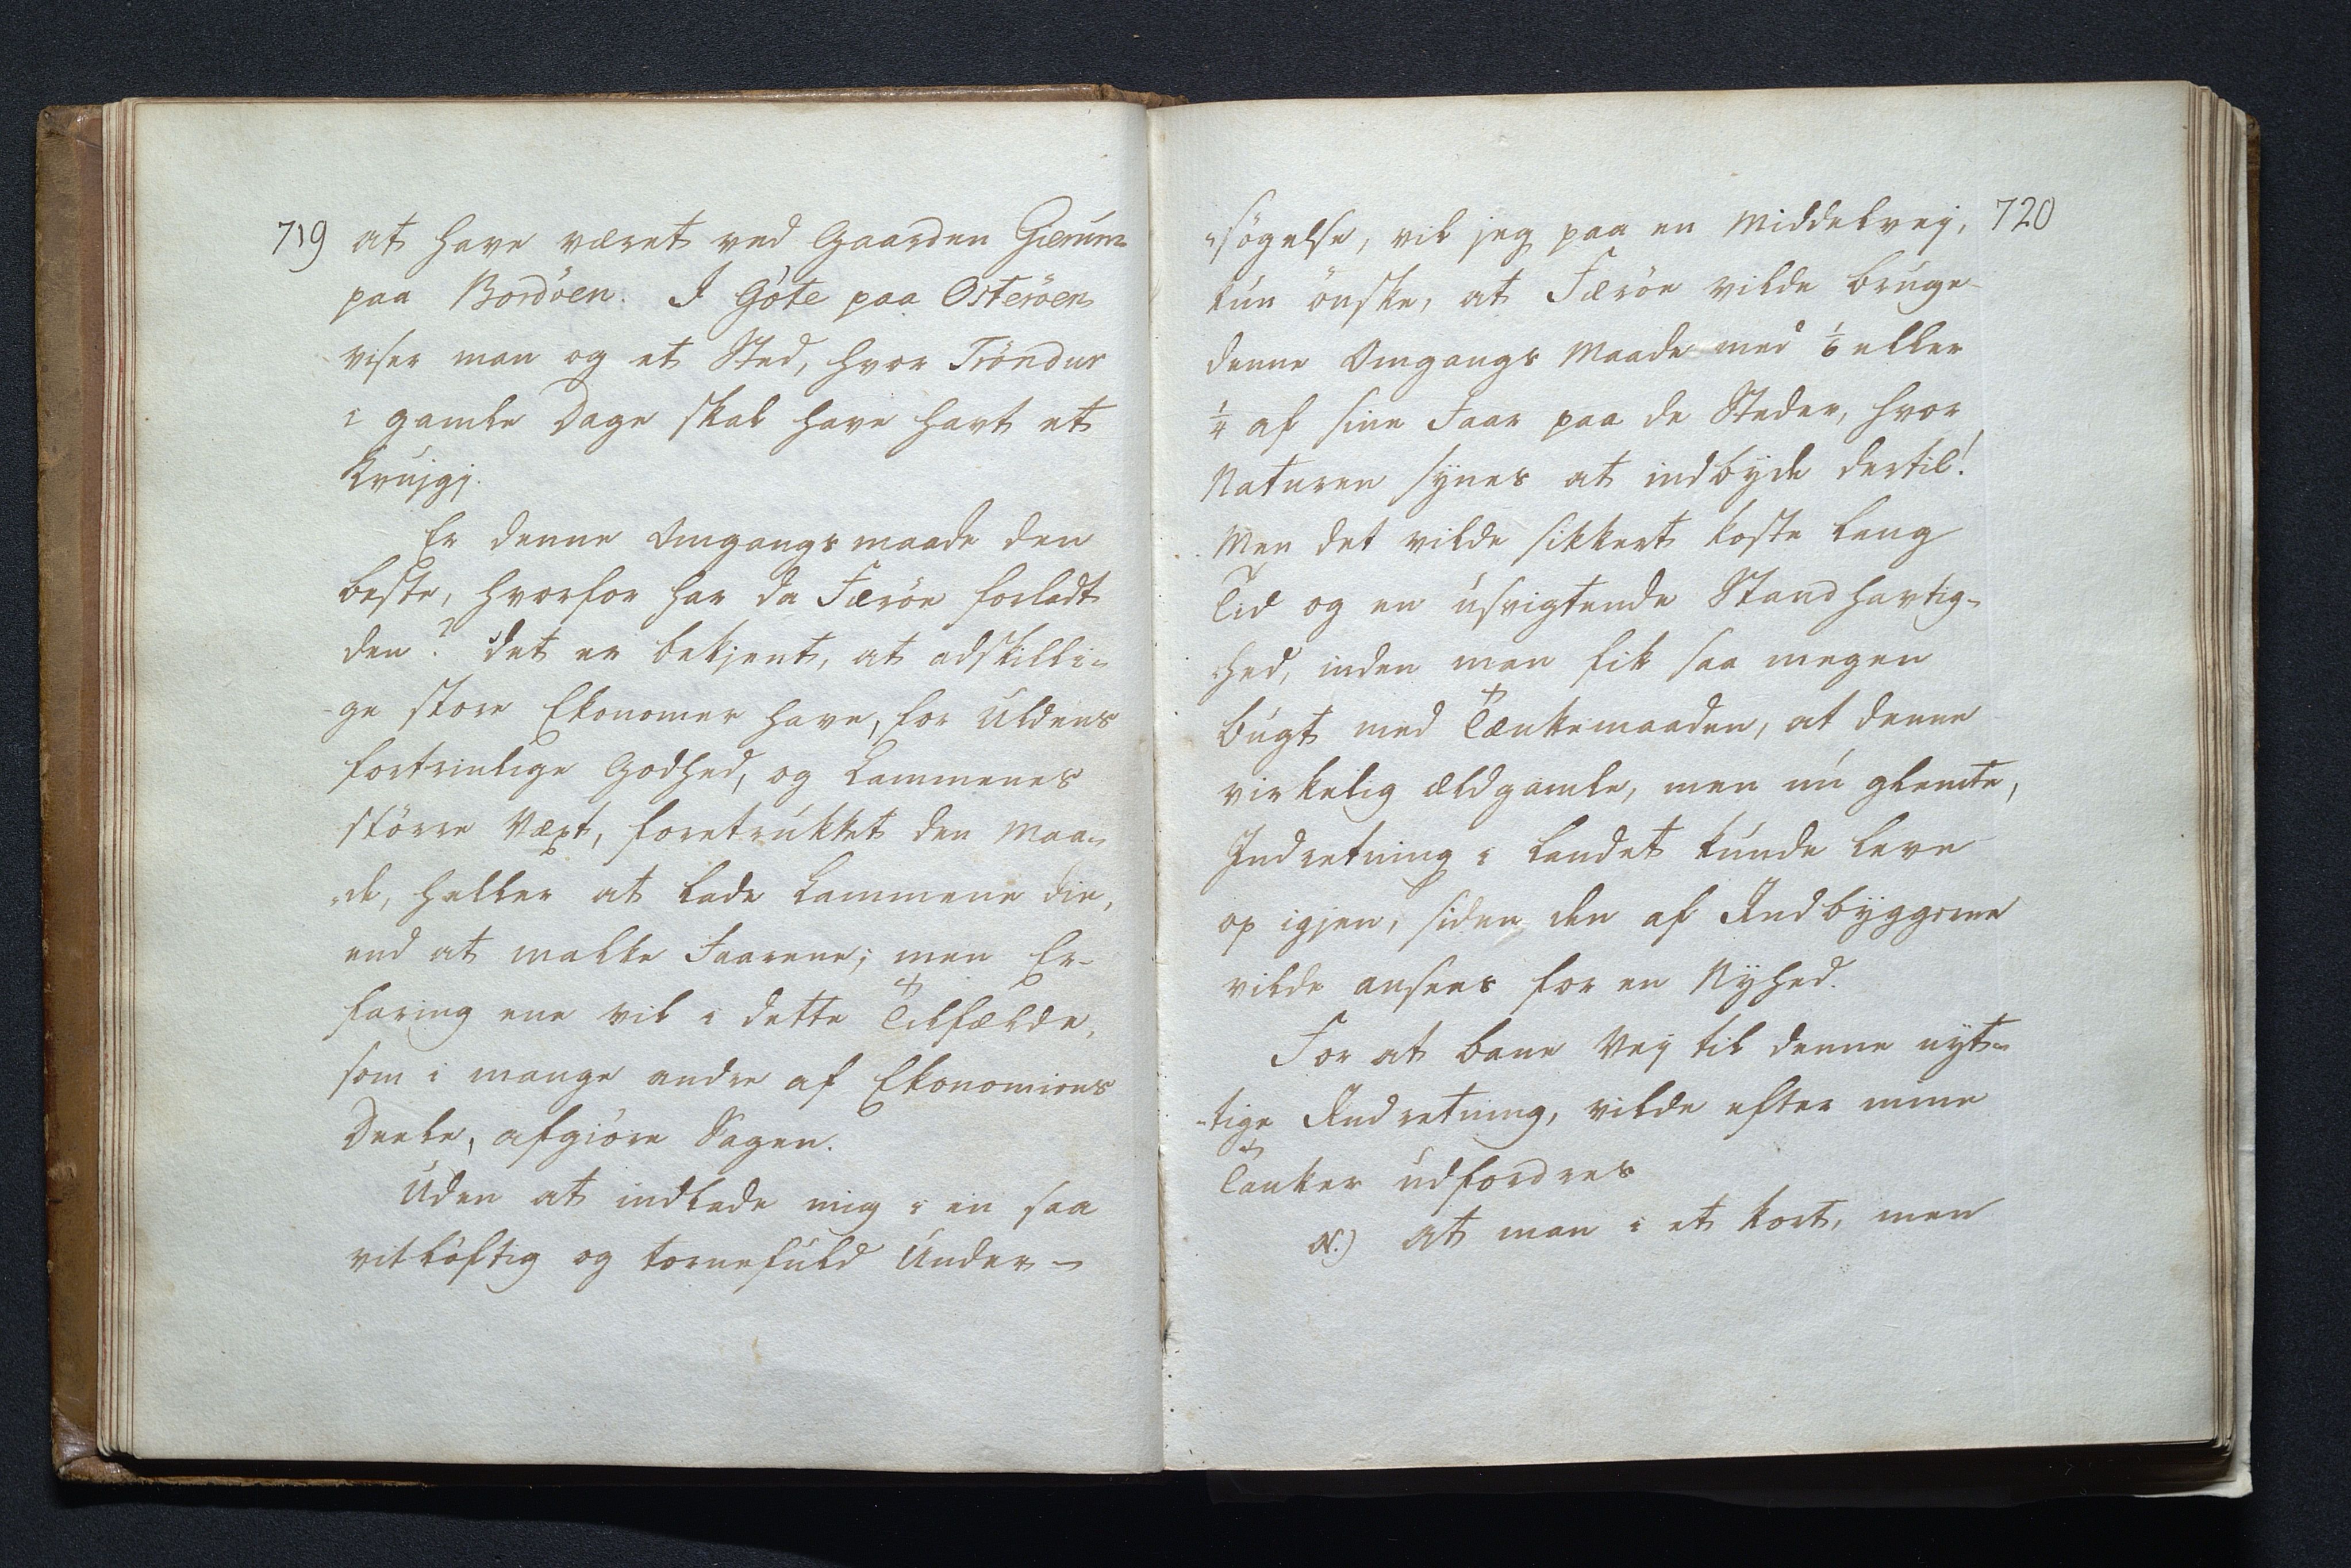 719 at have været ved Gaarden Gierum
paa Bordöen. I Göte paa Osteröen
viser man og et Sted, hvor Tröndur
i gamle Dage skal have havt et
Krujgj.
Er denne Omgangsmaade den
beste, hvorfor har da Færöe forladt
den? Det er bekjent, at adskilli-
ge store Ekonomer have, for Uldens
fortrinlige Godhed, og Lammenes
större Væxt, foretrukket den Maa-
de, heller at lade Lammene die,
end at malke Faarene; men Er-
faring ene vil i dette Tilfælde,
som i mange andre af Ekonomiens
Deele, afgiöre Sagen.
Uden at indlade mig i en saa
vitlöftig og tornefuld Under-
-sögelse, vil jeg paa en Middelvej, 720
kun önske, at Færöe vilde bruge
denne Omgangs Maade med 1/6 eller
1/4 af sine Faar paa de Steder, hvor
Naturen synes at indbyde dertil!
Men det vilde sikkert koste lang
Tid og en usvigtende Standhavtig-
-hed, inden man fik saa megen
Bugt med Tænkemaaden, at denne
virkelig ældgamle, men nu glemte,
Indretning i Landet kunde leve
op igjen, siden den af Indbyggerne
vilde ansees for en Nyhed.
For at bane Vej til denne nyt-
-tige Indretning, vilde efter mine
Tanker udfordres
at man i et kort, men